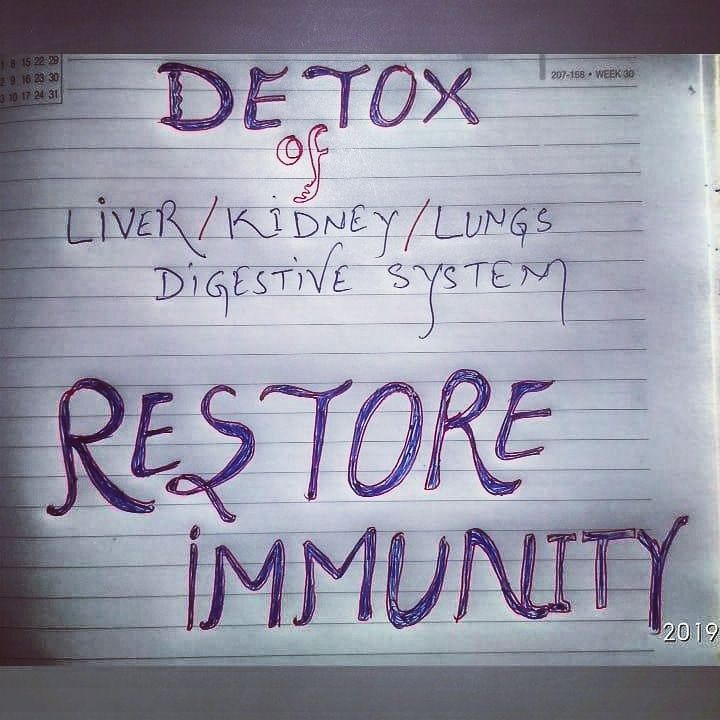 1 8 15 22 29
2 9 16 23 30
3 10 17 24 31
207-158 • WEEK 30
DETOX
of
LiVER/KiDNEY/LUNGS
DiGESTiVE SYSTEM
RESTORE
iMMUNITY
2019